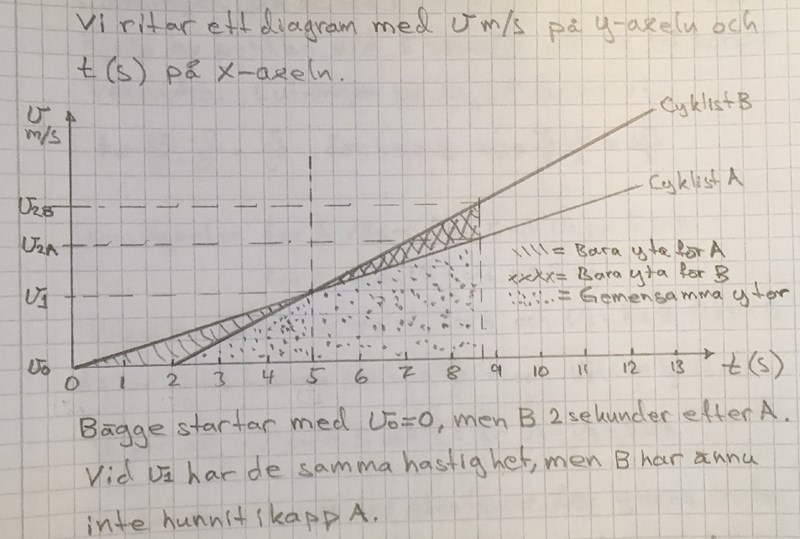 Vi ritar ett diagram med v m/s på y-axeln och
t (s) på x-axeln.
v
m/s
Cyklist B
Cyklist A
V2B
V2A
V1
V0
\\\\= Bara yta för A
xxxx= Bara yta för B
:::..= Gemensamma ytor
0 1 2 3 4 5 6 7 8 9 10 11 12 13 t (s)
Bägge startar med V0=0, men B 2 sekunder efter A.
Vid V1 har de samma hastighet, men B har ännu
inte hunnit ikapp A.